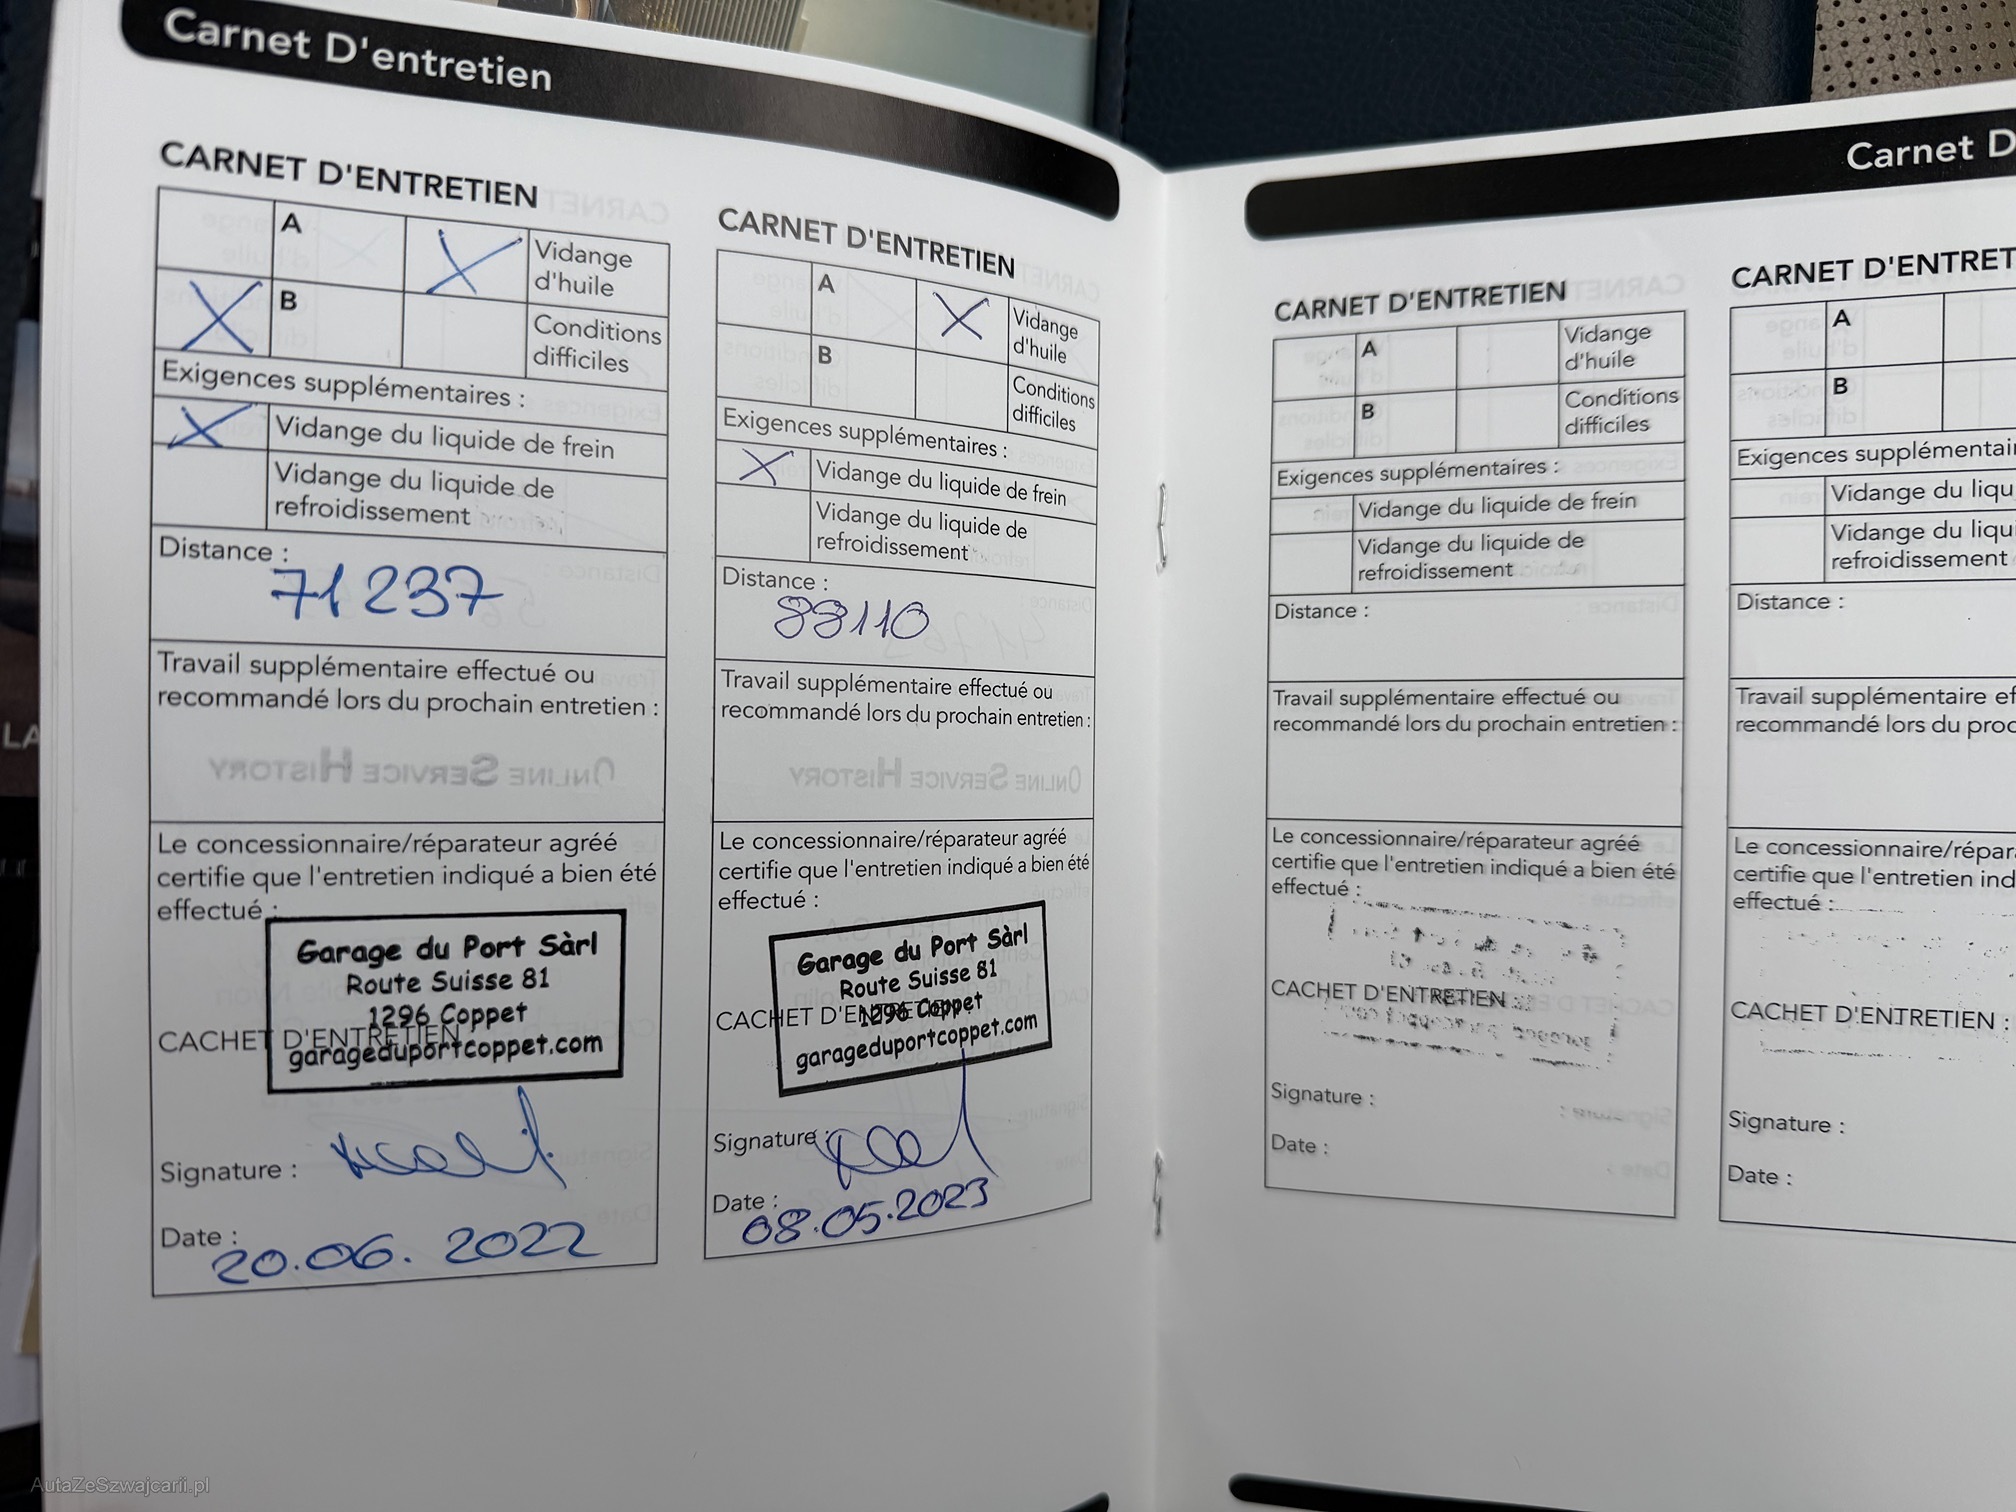 Carnet D'entretien
CARNET D'ENTRETIEN
A
Vidange
d'huile
B
Conditions
difficiles
Exigences supplémentaires :
Vidange du liquide de frein
Vidange du liquide de
refroidissement
Distance :
71237
Travail supplémentaire effectué ou
recommandé lors du prochain entretien :
ONLINE SERVICE HISTORY
Le concessionnaire/réparateur agréé
certifie que l'entretien indiqué a bien été
effectué :
Garage du Port Sàrl
Route Suisse 81
1296 Coppet
CACHET D'ENTRETIEN :
garageduportcoppet.com
Signature :
Date :
20.06.2022
CARNET D'ENTRETIEN
A
Vidange
d'huile
B
Conditions
difficiles
Exigences supplémentaires :
Vidange du liquide de frein
Vidange du liquide de
refroidissement
Distance :
88110
Travail supplémentaire effectué ou
recommandé lors du prochain entretien :
ONLINE SERVICE HISTORY
Le concessionnaire/réparateur agréé
certifie que l'entretien indiqué a bien été
effectué :
Garage du Port Sàrl
Route Suisse 81
1296 Coppet
CACHET D'ENTRETIEN :
garageduportcoppet.com
Signature :
Date :
08.05.2023
Carnet D
CARNET D'ENTRETIEN
A
Vidange
d'huile
B
Conditions
difficiles
Exigences supplémentaires :
Vidange du liquide de frein
Vidange du liquide de
refroidissement
Distance :
Travail supplémentaire effectué ou
recommandé lors du prochain entretien :
Le concessionnaire/réparateur agréé
certifie que l'entretien indiqué a bien été
effectué :
CACHET D'ENTRETIEN :
Signature :
Date :
CARNET D'ENTRET
A
B
Exigences supplémentai
Vidange du liqu
Vidange du liqu
refroidissement
Distance :
Travail supplémentaire ef
recommandé lors du proc
Le concessionnaire/répar
certifie que l'entretien ind
effectué :
CACHET D'ENTRETIEN :
Signature :
Date :
LA
AutaZeSzwajcarii.pl